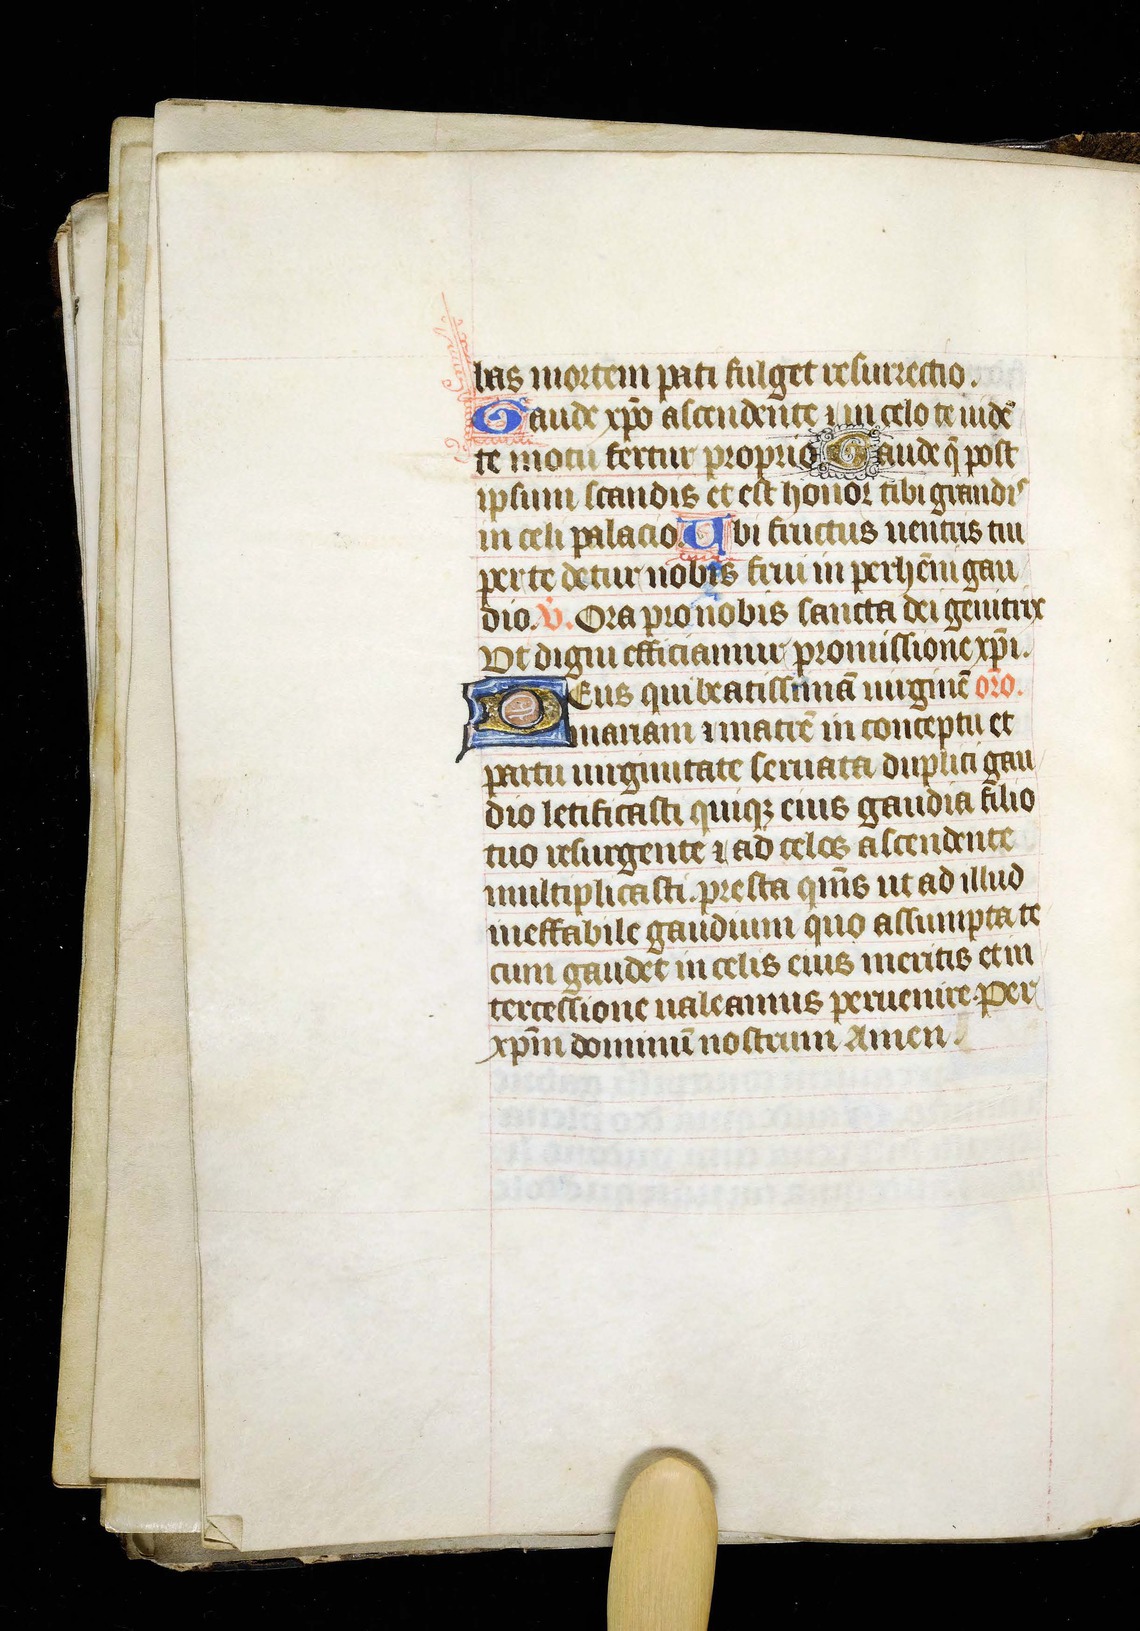 bas mortem pati fulget resurrectio.
Gaude xp̄o ascendente ⁊ in celo te uidē
te motu fertur proprio Gaude q̄ post
ipsum scandis et est honor tibi grandis
in celi palacio. Ubi fructus uentris tui
per te detur nobis frui in perhēni gau
dio. V̄. Ora pro nobis sancta dei genitrix
Vt digni efficiamur promissione xp̄i.
Deus qui beatissimā uirginē or̄o.
mariam ⁊ matrē in conceptu et
partu uirginitate seruata duplici gau
dio letificasti quiqꝫ eius gaudia filio
tuo resurgente ⁊ ad celos ascendente
multiplicasti. presta qm̄s ut ad illud
ineffabile gaudium quo assumpta te
cum gaudet in celis eius meritis et in
tercessione ualeamus peruenire. Per
xp̄m dominū nostrum Amen.